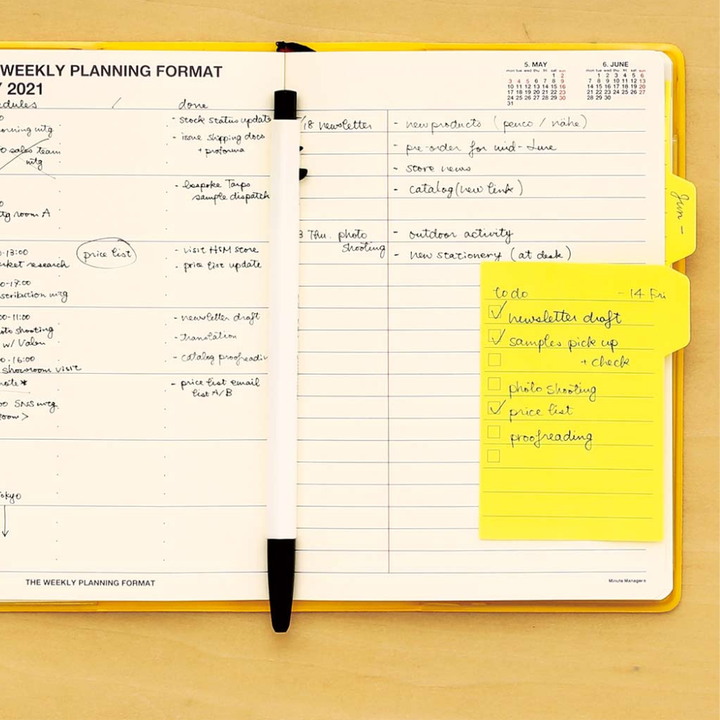 WEEKLY PLANNING FORMAT
2021
done
- stock status update
- issue shipping docs
+ proforma
sales team
mtg
- bespoke Tarps
sample dispatch
mtg room A
-13:00
market research
price list
- visit H&M store
- price list update
-17:00
distribution mtg
-11:00
photo shooting
w/ Valon
- newsletter draft
- translation
-16:00
showroom visit
- catalog proofreadin
note*
- price list email
list A/B
00 SNS mtg
room >
Tokyo
THE WEEKLY PLANNING FORMAT
5. MAY
mon tue wed thu fri sat sun
1 2
3 4 5 6 7 8 9
10 11 12 13 14 15 16
17 18 19 20 21 22 23
24 25 26 27 28 29 30
31
6. JUNE
mon tue wed thu fri sat sun
1 2 3 4 5 6
7 8 9 10 11 12 13
14 15 16 17 18 19 20
21 22 23 24 25 26 27
28 29 30
/18 newsletter
- new products (penco / nähe)
- pre-order for mid-June
- store news
- catalog (new link)
3 Thu. photo
shooting
- outdoor activity
- new stationery (at desk)
Jun -
to do
- 14 Fri
newsletter draft
samples pick up
+ check
photo shooting
price list
proofreading
Minute Managers